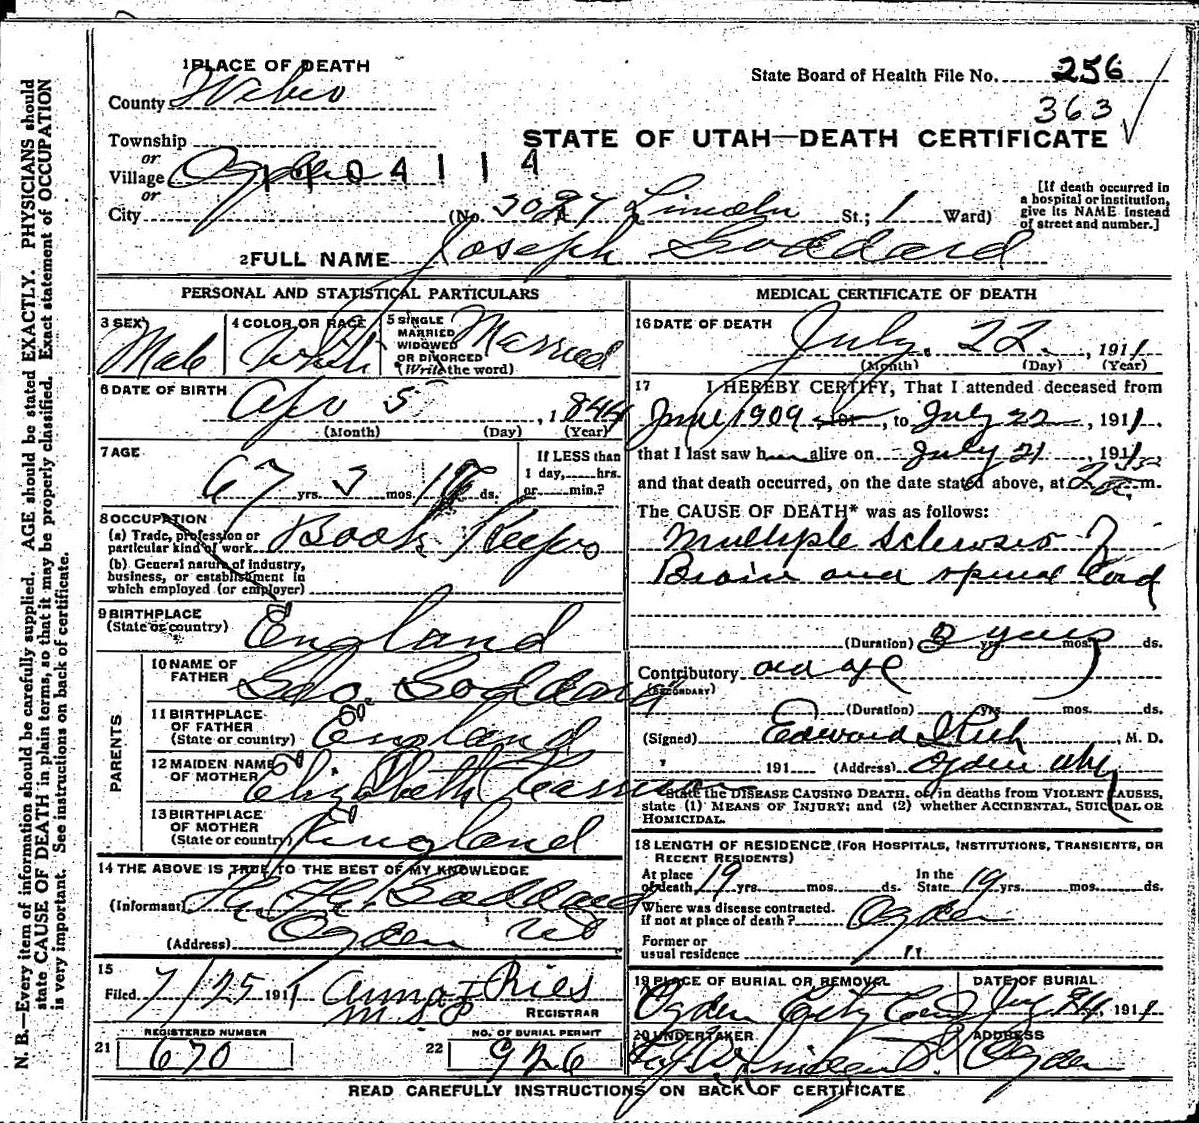 N. B.—Every item of information should be carefully supplied. AGE should be stated EXACTLY. PHYSICIANS should
state CAUSE OF DEATH in plain terms, so that it may be properly classified. Exact statement of OCCUPATION
is very important. See instructions on back of certificate.
1 PLACE OF DEATH
County Weber
State Board of Health File No. 256
363
Township
or
Village Ogden
1104114
or
City
STATE OF UTAH—DEATH CERTIFICATE
(No. Lincoln St.; 1 Ward)
[If death occurred in
a hospital or institution,
give its NAME instead
of street and number.]
2 FULL NAME Joseph Goddard
PERSONAL AND STATISTICAL PARTICULARS
3 SEX Male
4 COLOR OR RACE White
5 SINGLE
MARRIED
WIDOWED
OR DIVORCED
(Write the word)
Married
6 DATE OF BIRTH
Apr 5, 1844
(Month) (Day) (Year)
7 AGE
67 yrs. 3 mos. ds.
If LESS than
1 day, hrs.
or min.?
8 OCCUPATION
(a) Trade, profession or
particular kind of work Book Keeper
(b) General nature of industry,
business, or establishment in
which employed (or employer)
9 BIRTHPLACE
(State or country) England
PARENTS
10 NAME OF
FATHER Geo. Goddard
11 BIRTHPLACE
OF FATHER
(State or country) England
12 MAIDEN NAME
OF MOTHER Elizabeth
13 BIRTHPLACE
OF MOTHER
(State or country) England
14 THE ABOVE IS TRUE TO THE BEST OF MY KNOWLEDGE
(Informant) Goddard
(Address) Ogden
15
Filed 7/25 1911 Anna Ries
REGISTRAR
21 REGISTERED NUMBER
670
22 NO. OF BURIAL PERMIT
926
MEDICAL CERTIFICATE OF DEATH
16 DATE OF DEATH
July 22, 1911
(Month) (Day) (Year)
17 I HEREBY CERTIFY, That I attended deceased from
June 1909 191, to July 22, 1911.
that I last saw h alive on July 21, 1911
and that death occurred, on the date stated above, at m.
The CAUSE OF DEATH* was as follows:
Multiple Sclerosis of
Brain and spinal Cord
(Duration) yrs. mos. ds.
years
Contributory old age
(SECONDARY)
(Duration) yrs. mos. ds.
(Signed) Edward I Rich, M. D.
, 191 (Address) Ogden Utah
*State the DISEASE CAUSING DEATH, or, in deaths from VIOLENT CAUSES,
state (1) MEANS OF INJURY; and (2) whether ACCIDENTAL, SUICIDAL OR
HOMICIDAL.
18 LENGTH OF RESIDENCE (FOR HOSPITALS, INSTITUTIONS, TRANSIENTS, OR
RECENT RESIDENTS)
At place
of death 19 yrs. mos. ds. In the
State 19 yrs. mos. ds.
Where was disease contracted,
if not at place of death? Ogden
Former or
usual residence "
19 PLACE OF BURIAL OR REMOVAL
Ogden City Cem
DATE OF BURIAL
July 24, 1911
20 UNDERTAKER
ADDRESS
Ogden
READ CAREFULLY INSTRUCTIONS ON BACK OF CERTIFICATE